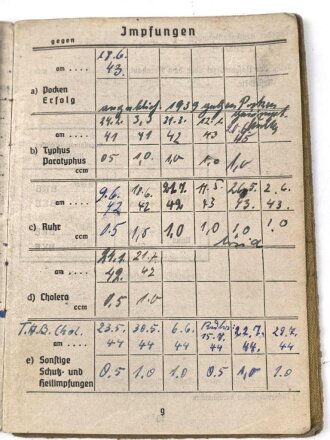 Impfungen
gegen
am .... 18.6. 43.
a) Pocken
Erfolg angeblich 1939 gegen Pocken
24.2. 3.3. 21.3.
am .... 41 41 42 43 45
b) Typhus
Paratyphus 05 1.0 1,0 1.0 1,0
ccm
9.6. 18.6. 2.6.
am .... 42 42 42 43 43. 43.
c) Ruhr 0.5 1,0 1,0 1,0 1.0
ccm
21.7.
am .... 42. 42
d) Cholera 0.5 1.0
ccm
T.A.B. Chol. 23.5. 30.5. 6.6. Ruhr: 15.7. 22.7. 29.7.
am .... 44 44 44 44 44. 44
e) Sonstige
Schutz- und 0.5 1.0 1.0 0.5 1,0 1.0
Heilimpfungen
9